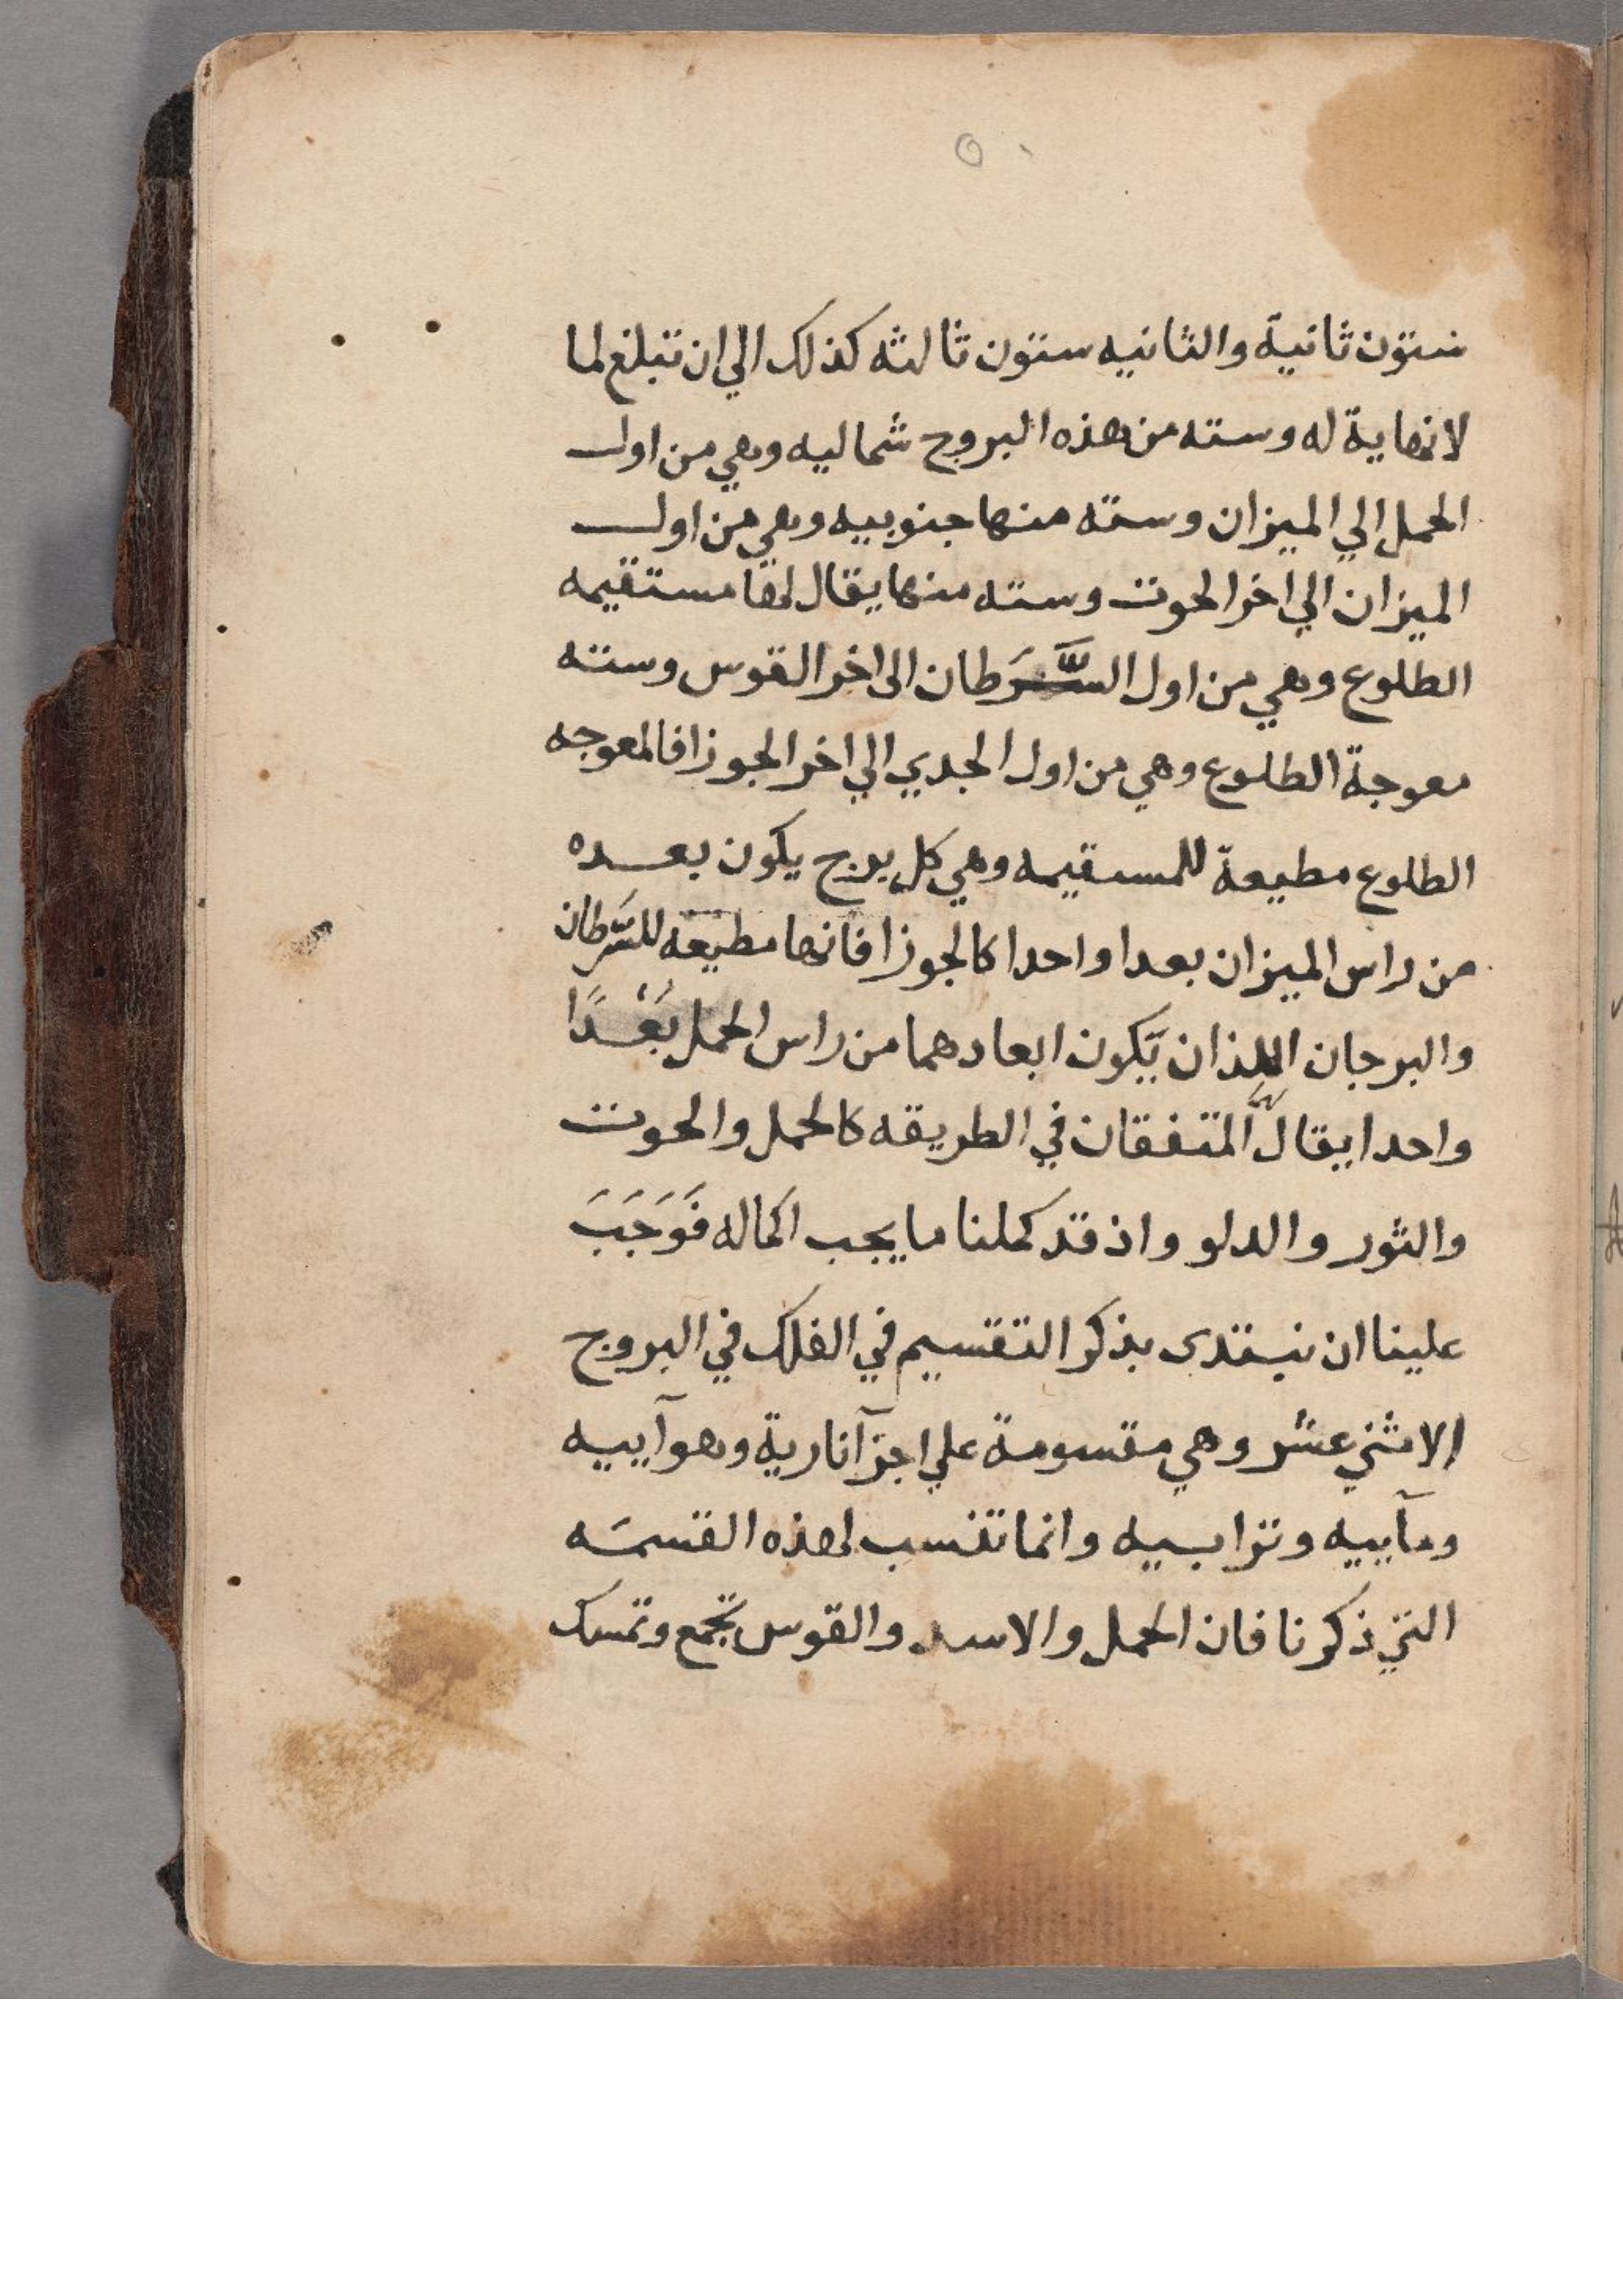 ٥٠
ستون ثانية والثانيه ستون ثالثه كذلك الي ان تبلغ لما
لا نهاية له وسته من هذه البروج شماليه وهي من اول
الحمل الي الميزان وسته منها جنوبيه وهي من اول
الميزان الي اخر الحوت وسته منها يقال لها مستقيمه
الطلوع وهي من اول السَّرَطان الى اخر القوس وسته
معوجة الطلوع وهي من اول الجدي الي اخر الجوزا فالمعوجه
الطلوع مطيعة للمستقيمه وهي كل برج يكون بعده
من راس الميزان بعدا واحدا كالجوزا فانها مطيعه للسَّرطان
والبرجان اللذان يَكون ابعادهما من راس الحمل بُعْدًا
واحدا يقال لهما المتفقان في الطريقه كالحمل والحوت
والثور والدلو واذ قد كملنا ما يجب اكماله فَوَجَبَ
علينا ان نبتدى بذكر التقسيم في الفلك في البروج
الاثني عشر وهي مقسومة علي اجزآ نارية وهوآييه
ومآييه وترابيه وانما تنسب لهذه القسمَه
التي ذكرنا فان الحمل والاسد والقوس تجمع وتمسك